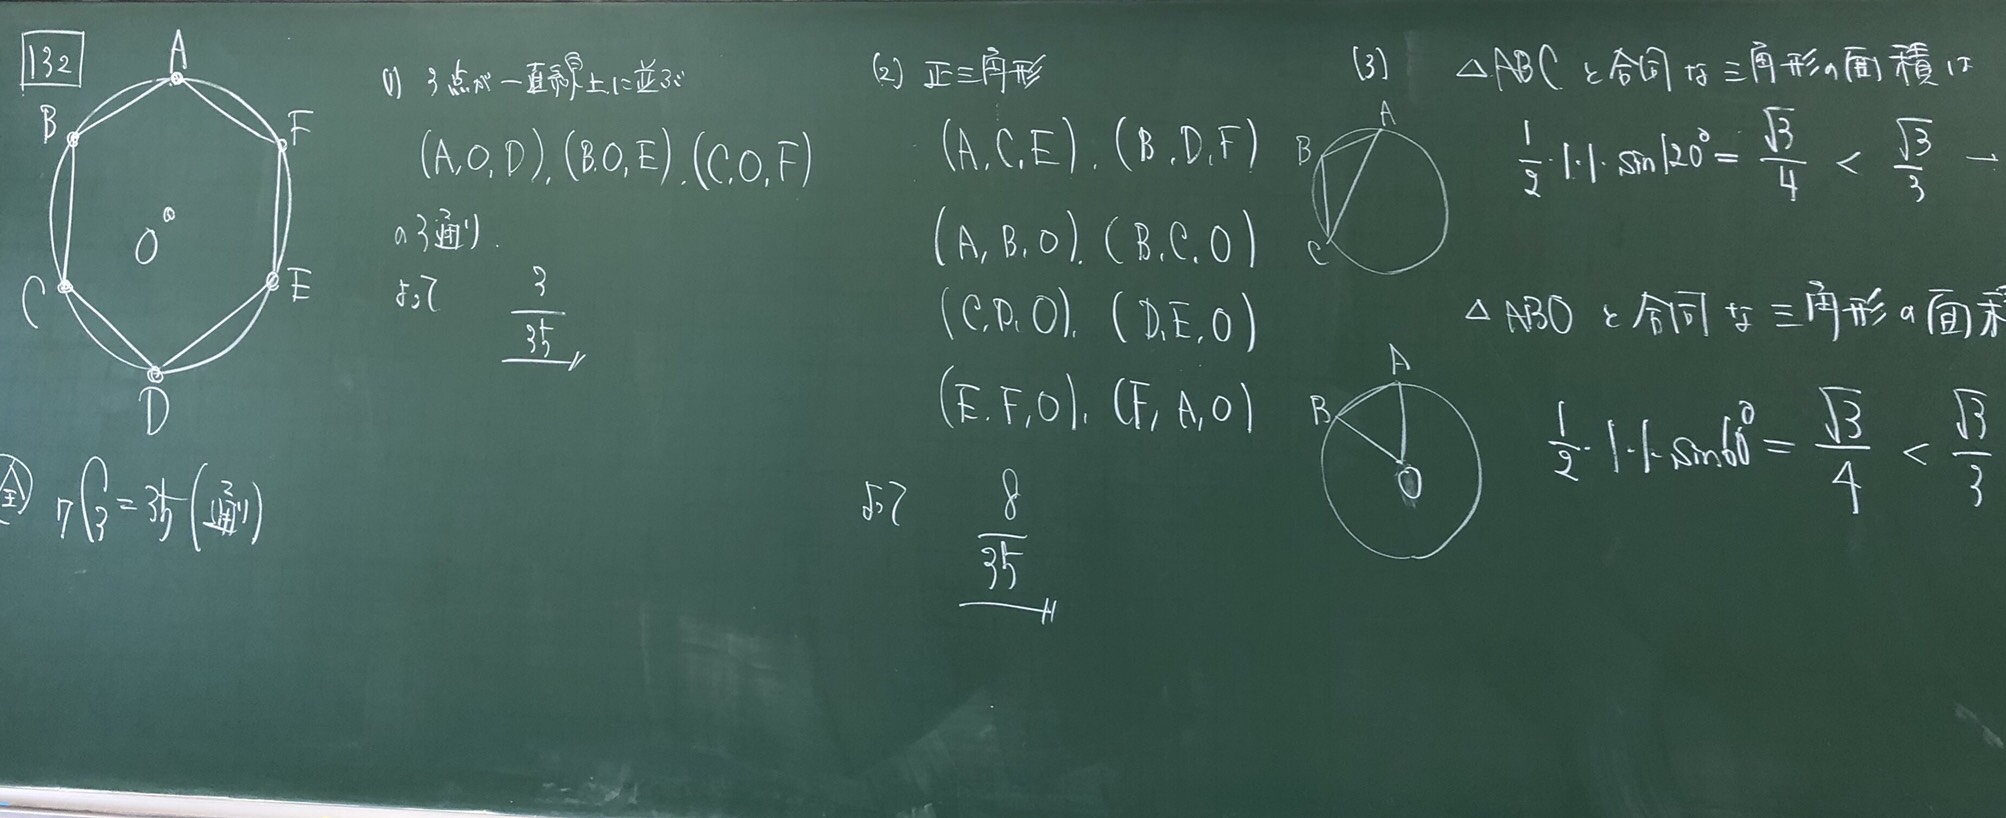 132
A
B
F
O
C
E
D
全 ₇C₃ = 35 (通り)
(1) 3点が一直線上に並ぶ
(A,O,D), (B.O,E), (C.O,F)
の3通り.
よって
3/35
(2) 正三角形
(A,C,E), (B,D,F)
(A,B,O), (B.C.O)
(C,D,O), (D,E,O)
(E.F,O), (F,A,O)
よって 8/35
(3) △ABCと合同な三角形の面積は
A
B
C
1/2・1・1・sin120° = √3/4 < √3/3
△ABOと合同な三角形の面積
A
B
O
1/2・1・1・sin60° = √3/4 < √3/3